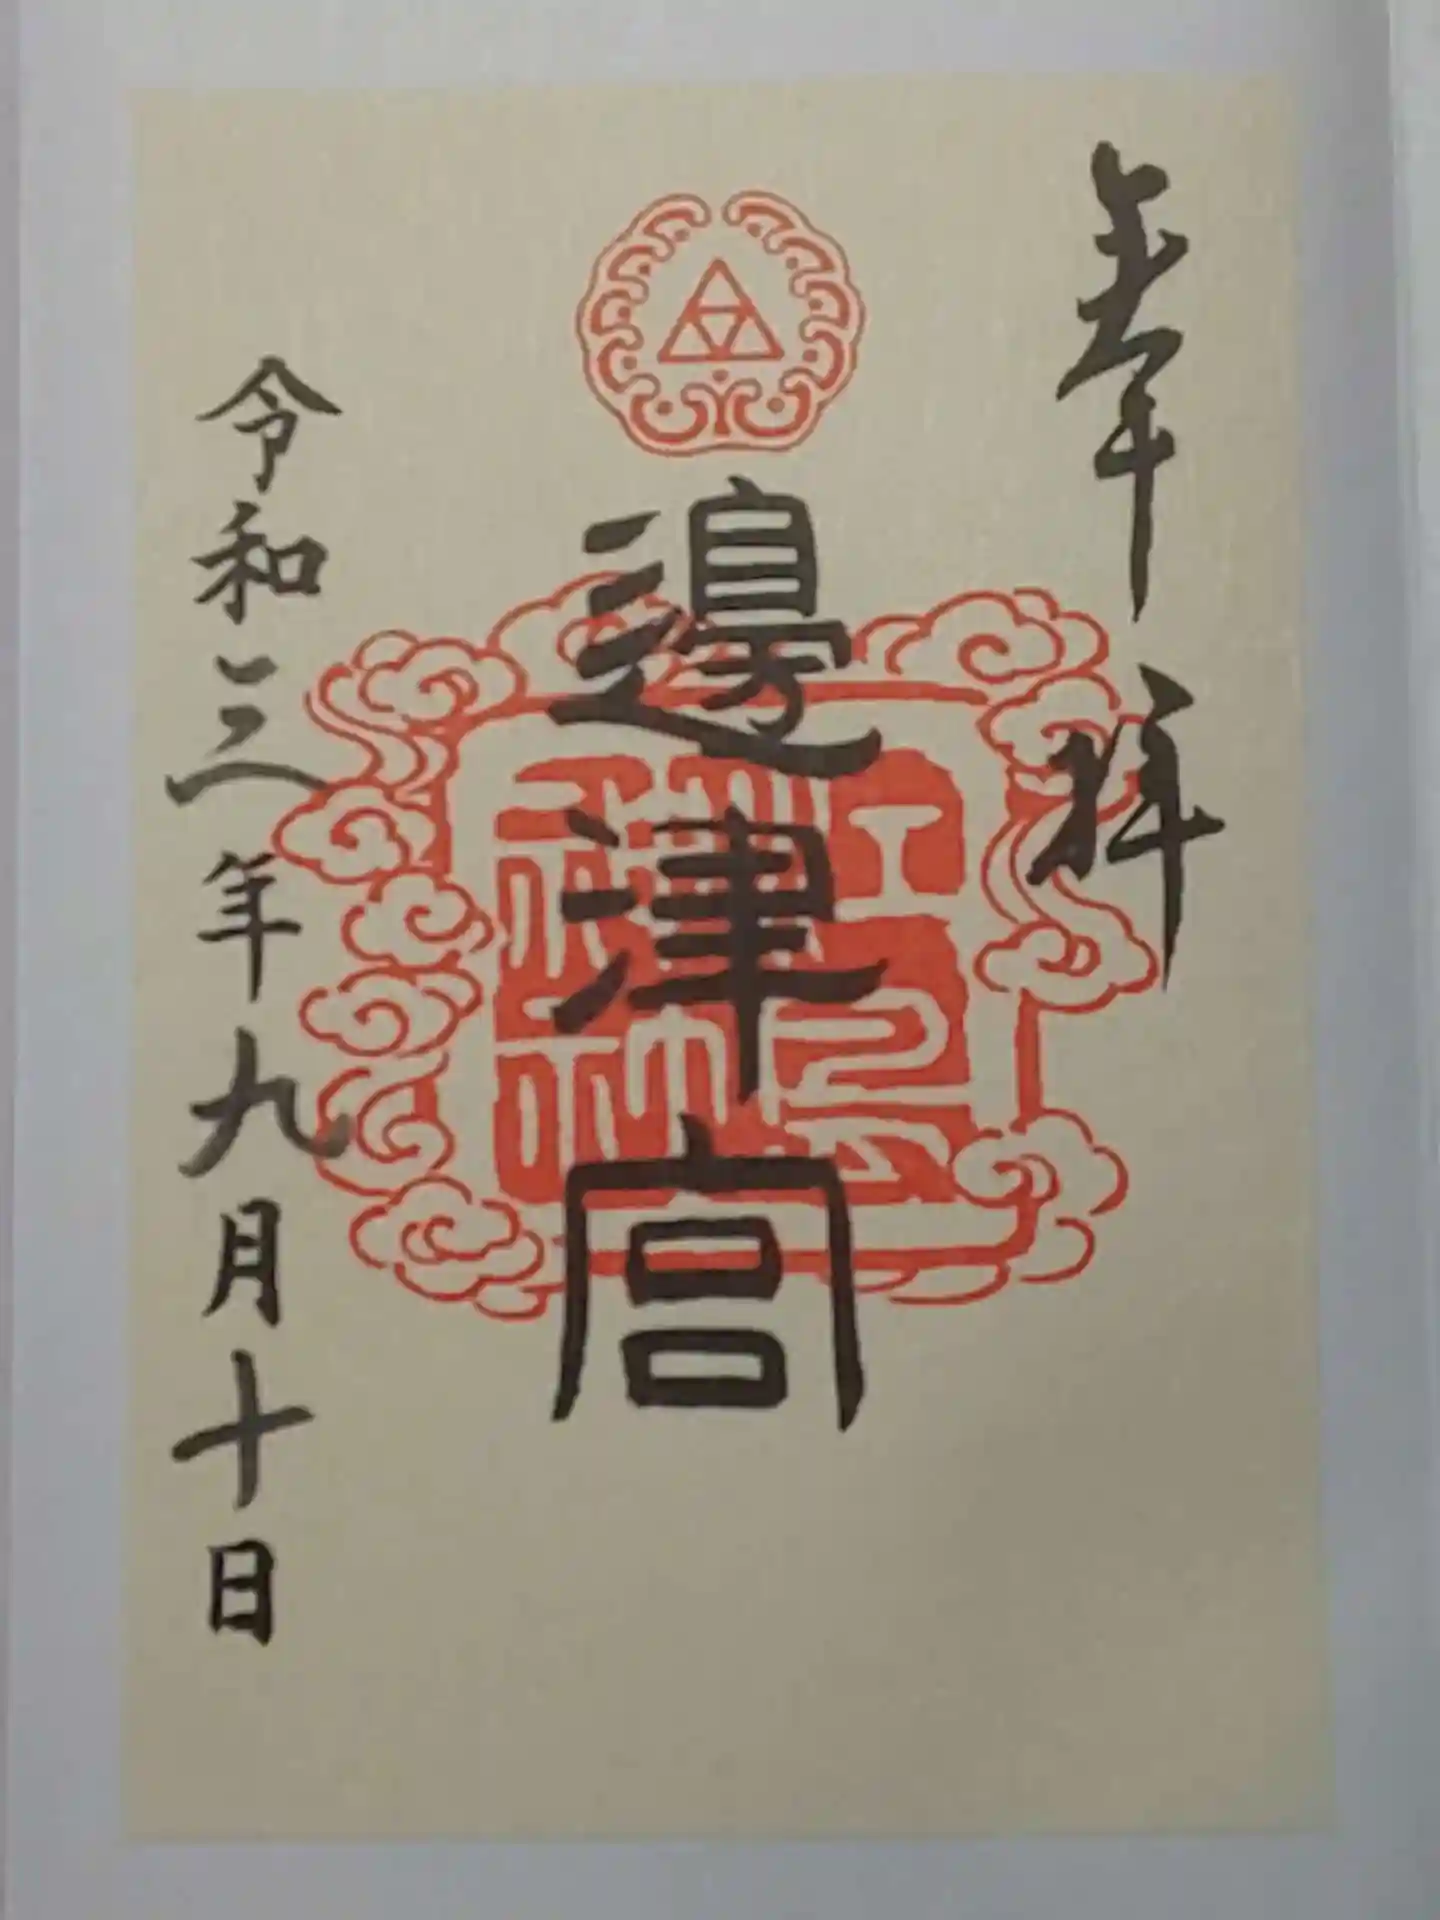 奉拝
邊津宮
令和三年九月十日